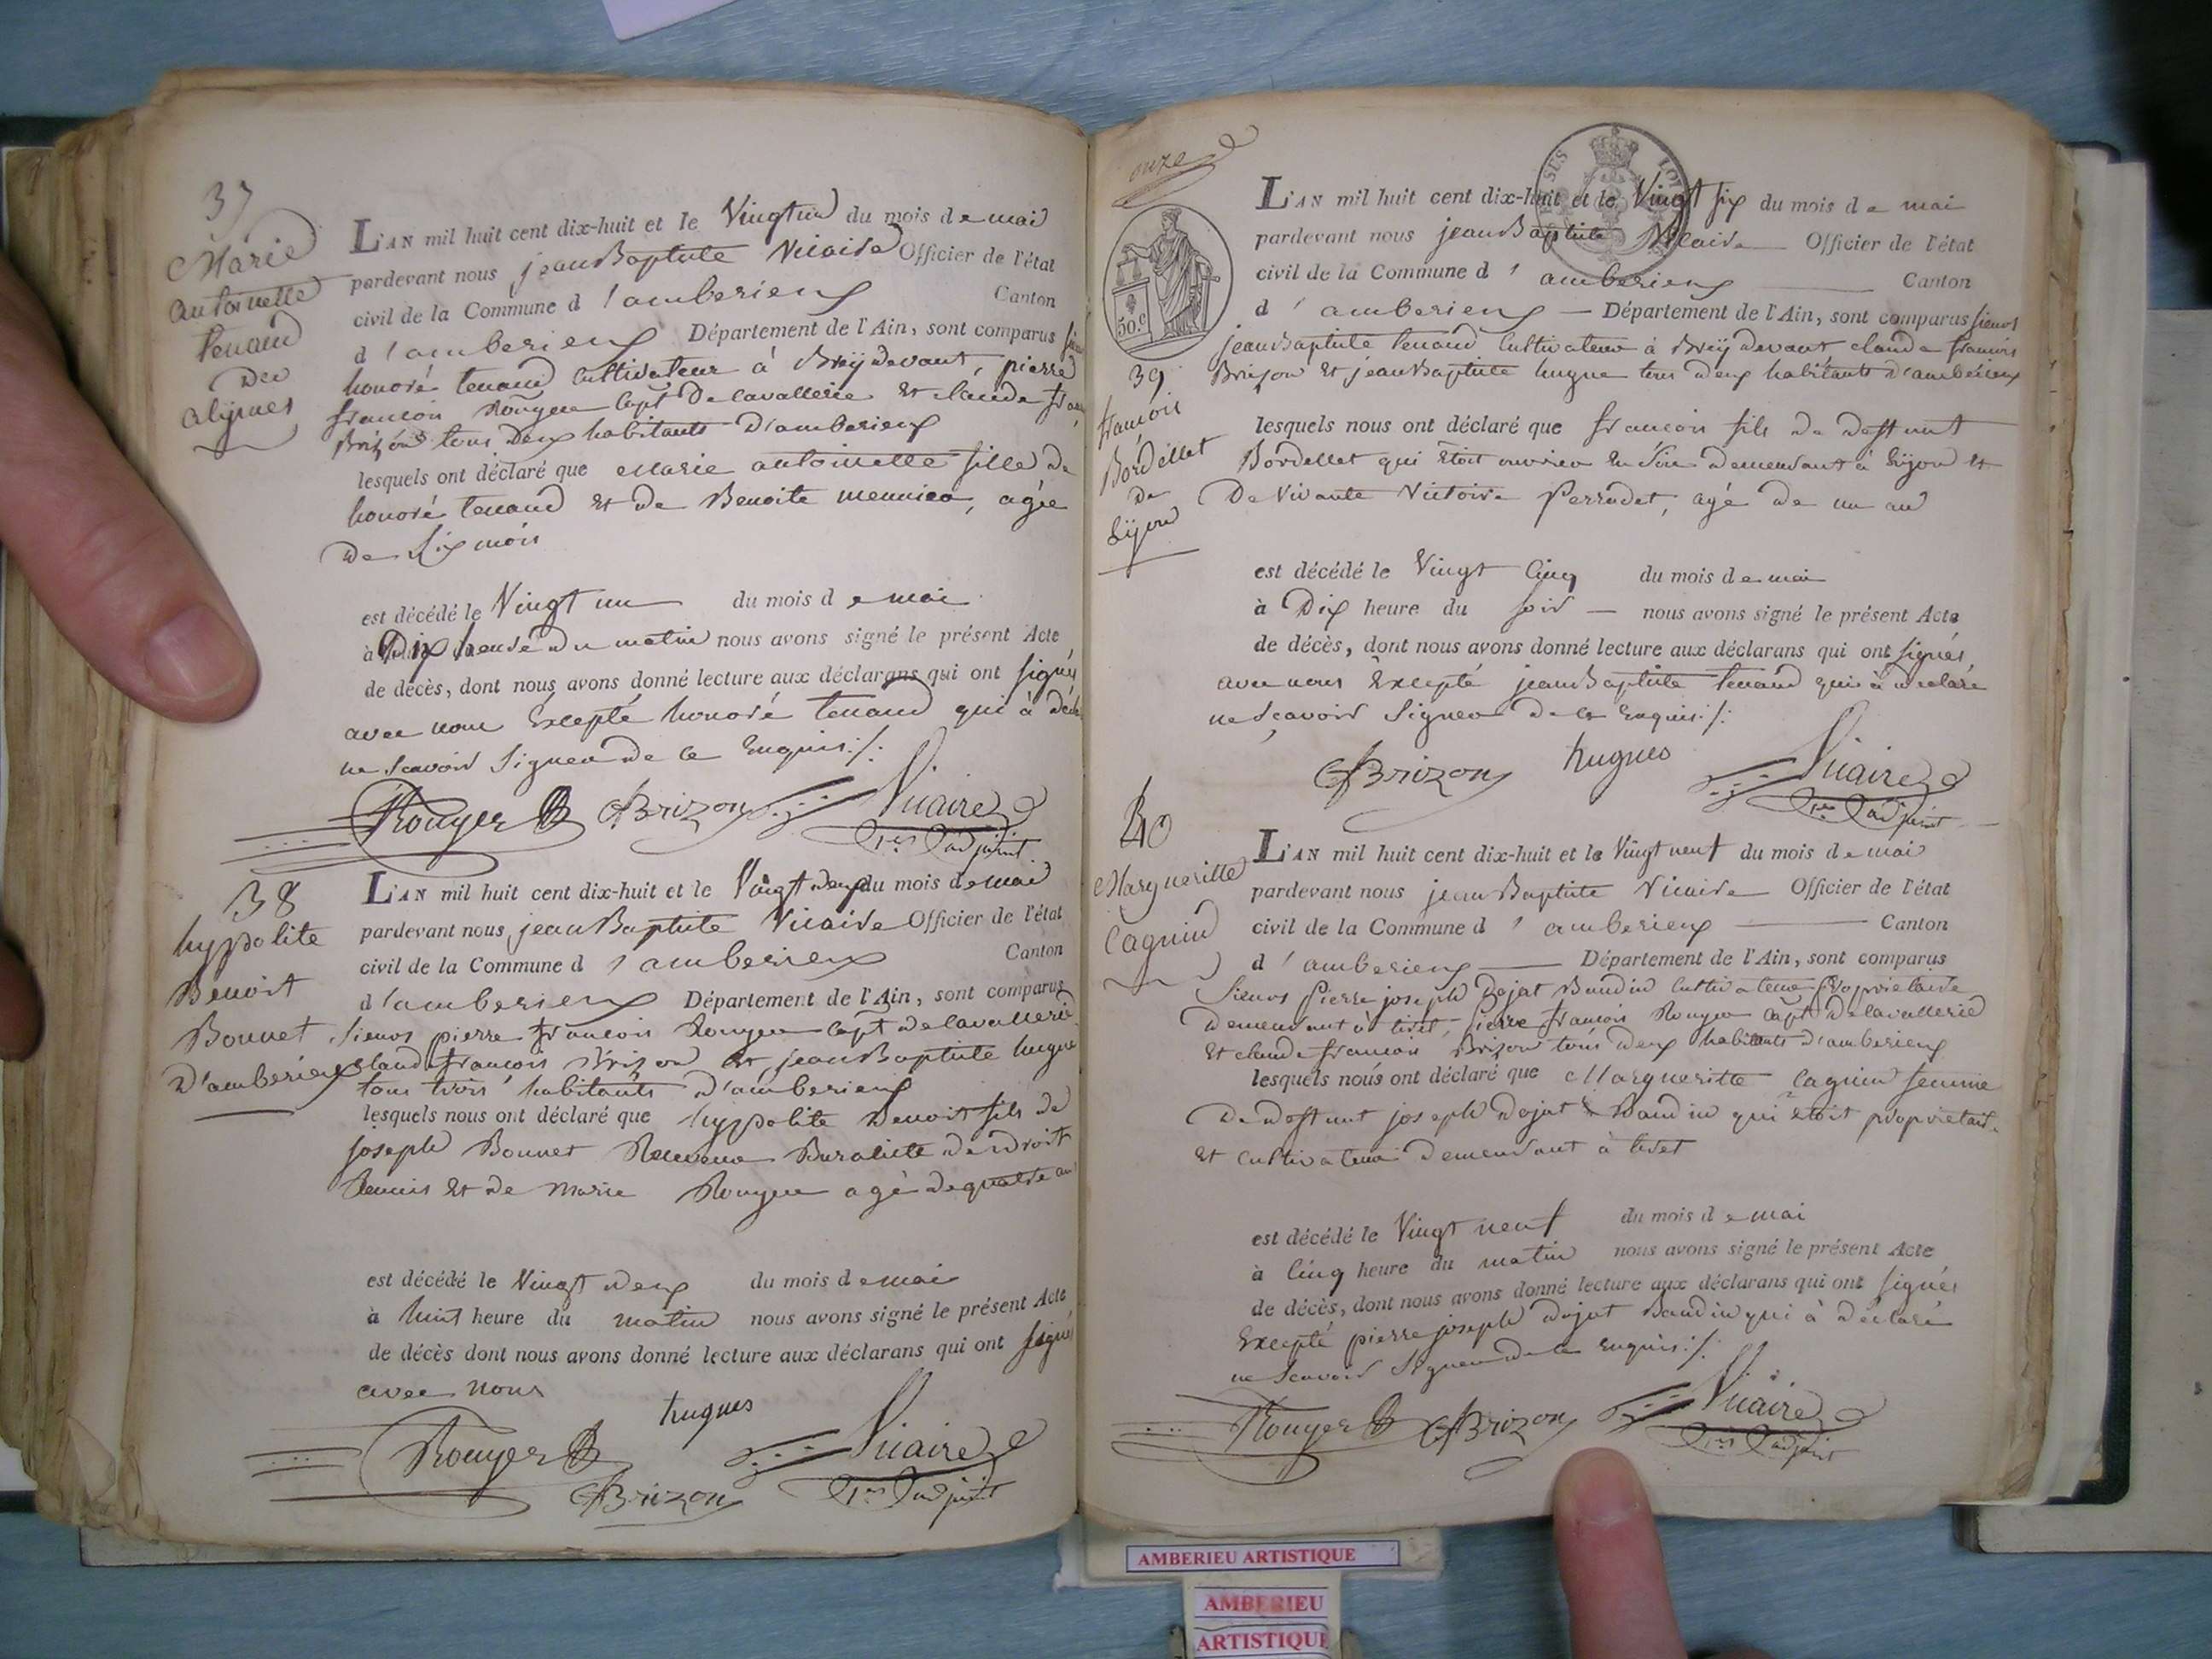 37
Marie
antoinette
tenand
des
alÿmes
L'AN mil huit cent dix-huit et le Vingtun du mois de mai
pardevant nous jean Baptiste Vicaire Officier de l'état
civil de la Commune d'amberieux Canton
d'amberieux Département de l'Ain, sont comparus
honoré tenand Cultivateur à Breÿdevant, pierre
francois Rouyer Capt de cavallerie et claude
Brizon tous deux habitants d'amberieux
lesquels ont déclaré que Marie antoinette fille de
honoré tenand et de Benoite meunier, agée
de Six mois
est décédé le Vingt un du mois de mai
à Dix heure du matin nous avons signé le présent Acte
de décès, dont nous avons donné lecture aux déclarans qui ont signés
avec nous Excepté honoré tenand qui à
ne Scavoir Signer de ce Enquis ./.
Rouyer CfBrizon Vicaire
1er adjoint
38
hyppolite
Benoit
Bonnet
d'amberieux
L'AN mil huit cent dix-huit et le Vingt deux du mois de mai
pardevant nous jean Baptiste Vicaire Officier de l'état
civil de la Commune d'amberieux Canton
d'amberieux Département de l'Ain, sont comparus
Sieurs pierre francois Rouyer Capt de cavallerie
claude francois Brizon et jean Baptiste hugue
tous trois habitants d'amberieux
lesquels nous ont déclaré que hyppolite Benoit fils de
joseph Bonnet Receveur Buraliste de droit
Reunis et de Marie Rouyer agé de quatre an
est décédé le Vingt deux du mois de mai
à huit heure du matin nous avons signé le présent Acte
de décès dont nous avons donné lecture aux déclarans qui ont signé
avec nous
hugues
Rouyer Vicaire
CfBrizon 1er adjoint
onze
50.c
39
francois
Bordellet
de
L'AN mil huit cent dix-huit et le Vingt six du mois de mai
pardevant nous jean Baptiste Vicaire Officier de l'état
civil de la Commune d'amberieux Canton
d'amberieux Département de l'Ain, sont comparus Sieurs
jean Baptiste tenand Cultivateur à Breÿ devant claude francois
Brizon et jean Baptiste hugue tous deux habitants d'amberieux
lesquels nous ont déclaré que francois fils de deffunt
Bordellet qui étoit ouvrier en demeurant à et
de Vivante Victoire Perrodet, agé de un an
est décédé le Vingt Cinq du mois de mai
à Dix heure du soir nous avons signé le présent Acte
de décès, dont nous avons donné lecture aux déclarans qui ont signés
avec nous Excepté jean Baptiste tenand qui à declaré
ne Scavoir Signer de ce Enquis ./.
CfBrizon hugues Vicaire
1er adjoint
40
Margueritte
Cagnin
L'AN mil huit cent dix-huit et le Vingt neuf du mois de mai
pardevant nous jean Baptiste Vicaire Officier de l'état
civil de la Commune d'amberieux Canton
d'amberieux Département de l'Ain, sont comparus
Sieurs Pierre joseph Dojat Baudin Cultivateur Proprietaire
demeurant à tiret, Pierre francois Rouyer Capt de cavallerie
et claude francois Brizon tous deux habitants d'amberieux
lesquels nous ont déclaré que Margueritte Cagnin femme
de deffunt joseph dojat Baudin qui étoit proprietair
et Cultivateur demeurant à tiret
est décédé le Vingt neuf du mois de mai
à Cinq heure du matin nous avons signé le présent Acte
de décès, dont nous avons donné lecture aux déclarans qui ont signés
Excepté pierre joseph dojat Baudin qui à déclaré
ne Scavoir Signer de ce Enquis ./.
Rouyer CfBrizon Vicaire
1er adjoint
AMBERIEU ARTISTIQUE
AMBERIEU
ARTISTIQUE